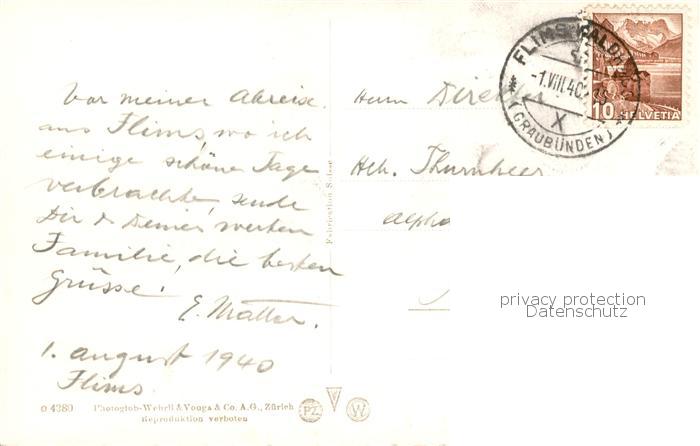 Vor meiner Abreise
aus Flims, wo ich
einige schöne Tage
verbrachte, sende
Dir & Deiner werten
Familie, die besten
Grüsse!
E. Matter.
1. August 1940
Flims.
Herrn Direktor
Hch. Thurnheer
Alpha
FLIMS-WALDHAUS
-1.VIII.40
X
(GRAUBÜNDEN)
10 HELVETIA
Fabrication Suisse
privacy protection
Datenschutz
O 4380 Photoglob-Wehrli & Vouga & Co. A.G., Zürich
Reproduktion verboten
PZ W